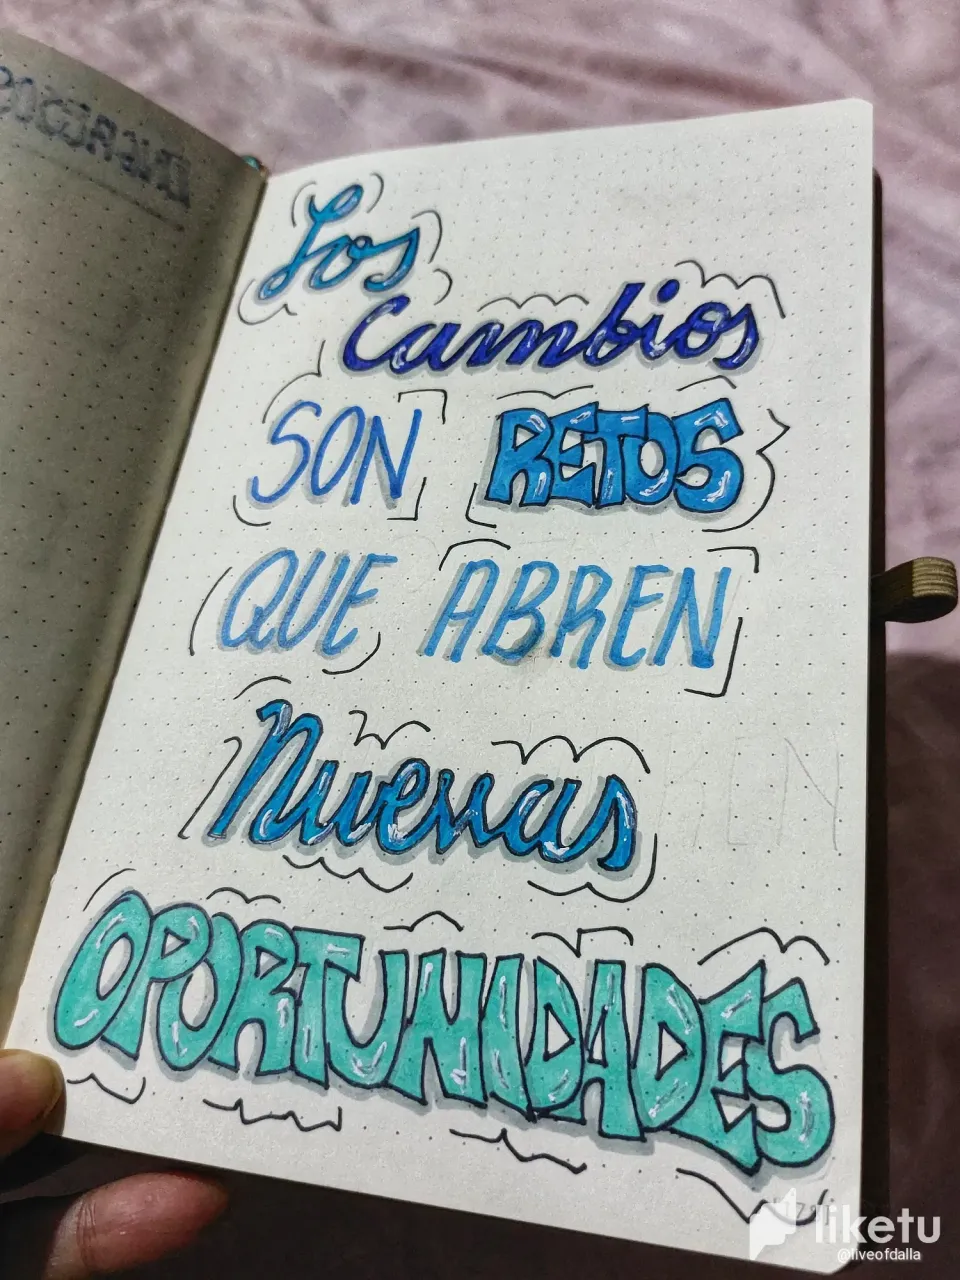 INGRESOS
Los
Cambios
SON RETOS
QUE ABREN
Nuevas
OPORTUNIDADES
liketu
@liveofdalla